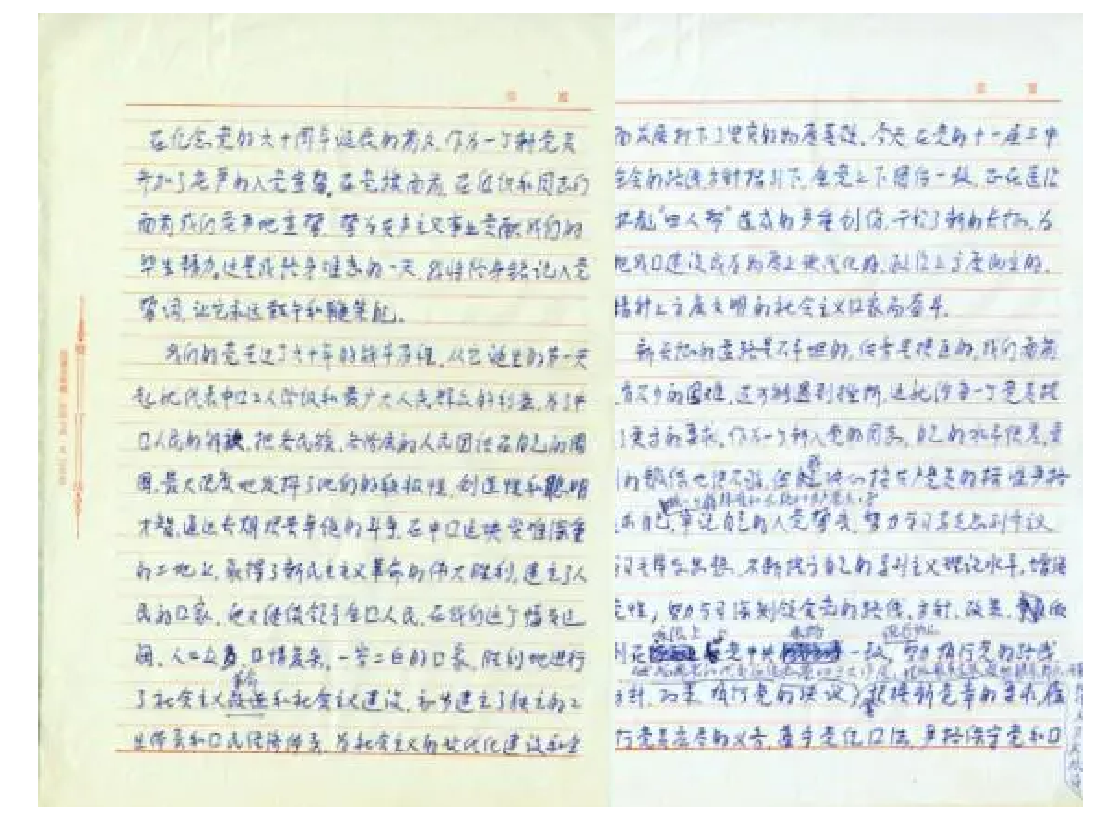 在纪念党的六十周年诞辰的前夕,作为一个新党员
参加了庄严的入党宣誓。在党旗面前,在组织和同志们
面前我们庄严地宣誓,誓为共产主义事业贡献我们的
毕生精力。这是我终身难忘的一天,我将终身铭记入党
誓词,让它永远教育和鞭策我。
我们的党走过了六十年的战斗历程,从它诞生的第一天
起,就代表中囗工人阶级和最广大人民群众的利益,为了中
囗人民的解放,把各民族、各阶层的人民团结在自己的周
围,最大限度地发挥了他们的积极性、创造性和聪明
才智,通过长期艰苦卓绝的斗争,在中囗这块灾难深重
的土地上,取得了新民主主义革命的伟大胜利,建立了人
民的囗家。她又继续领导全囗人民,在我们这个幅员辽
阔、人口众多、囗情复杂、一穷二白的囗家,胜利地进行
革命
了社会主义改造和社会主义建设,初步建立了独立的工
业体系和囗民经济体系,为社会主义的现代化建设和全
面发展打下了坚实的物质基础。今天在党的十一届三中
全会的路线方针指引下,全党上下团结一致,正在医治
林彪"四人帮"造成的严重创伤,开始了新的长征,为
把我囗建设成为物质上现代化的,政治上高度民主的,
精神上高度文明的社会主义囗家而奋斗。
新长征的道路是不平坦的,任务是艰巨的,我们面前
有不少的困难,还可能遇到挫折,这就给每一个党员提
了更高的要求。作为一个新入党的同志,自己的水平很差,
的锻炼也很不够,但 决心按共产党员的标准严格
求自己,牢记自己的入党誓言,努力学习马克思列宁主义
毛泽东思想,不断提高自己的马列主义理论水平,增强
党性,努力学习深刻领会党的路线、方针、政策,
政治上
党中央 一致,努力执行党的路线
方针、政策,执行党的决议,按照新党章的要求,履
行党员应尽的义务,遵守党纪囗法,严格保守党和囗